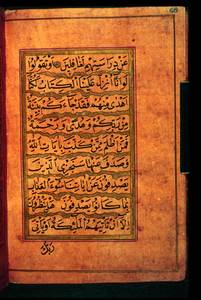 عن دراستهم لغافلين او تقولوا
لو انا انزل علينا الكتاب لكنا
اهدى منهم فقد جاءكم بينة
من ربكم وهدى ورحمة
فمن اظلم ممن كذب بايات الله
وصدف عنها سنجزي الذين
يصدفون عن اياتنا سوء العذاب
بما كانوا يصدفون هل ينظرون
الا ان تاتيهم الملئكة او ياتي
ربك